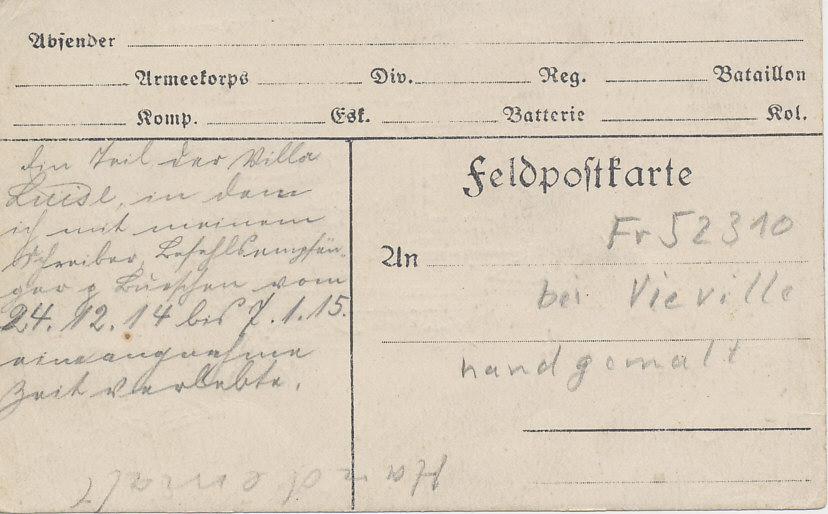 Absender
Armeekorps Div. Reg. Bataillon
Komp. Esk. Batterie Kol.
Feldpostkarte
An
Ein Teil der Villa
Luise, in dem
ich mit meinem
Schreiber, Befehlsempfän-
ger u. Burschen vom
24.12.14 bis 7.1.15.
eine angenehme
Zeit verlebte.
Fr 52310
bei Vieville
handgemalt
Handgemalt